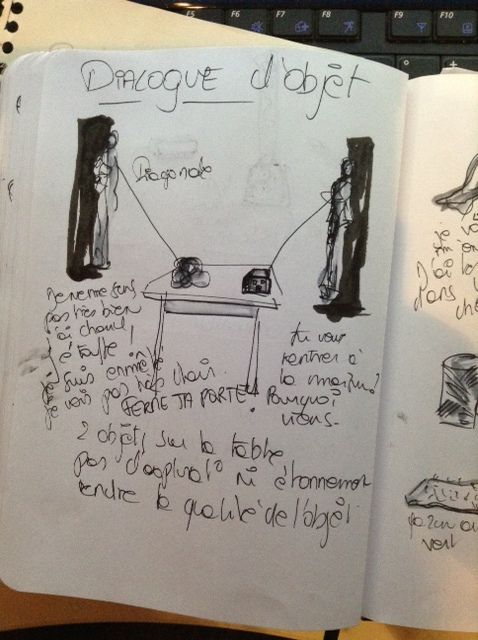 DIALOGUE d'objet
Diagonale
Je ne me sens
pas très bien
j'ai chaud,
j'étouffe!
suis enmêlé
je vois pas très clair.
FERME TA PORTE!
tu veux
rentrer à
la maison?
Pourquoi
viens-
2 objets sur la table
pas d'explicat° ni étonnement
rendre la qualité de l'objet.
je
dans
vert
F6
F7
F8
F9
F10